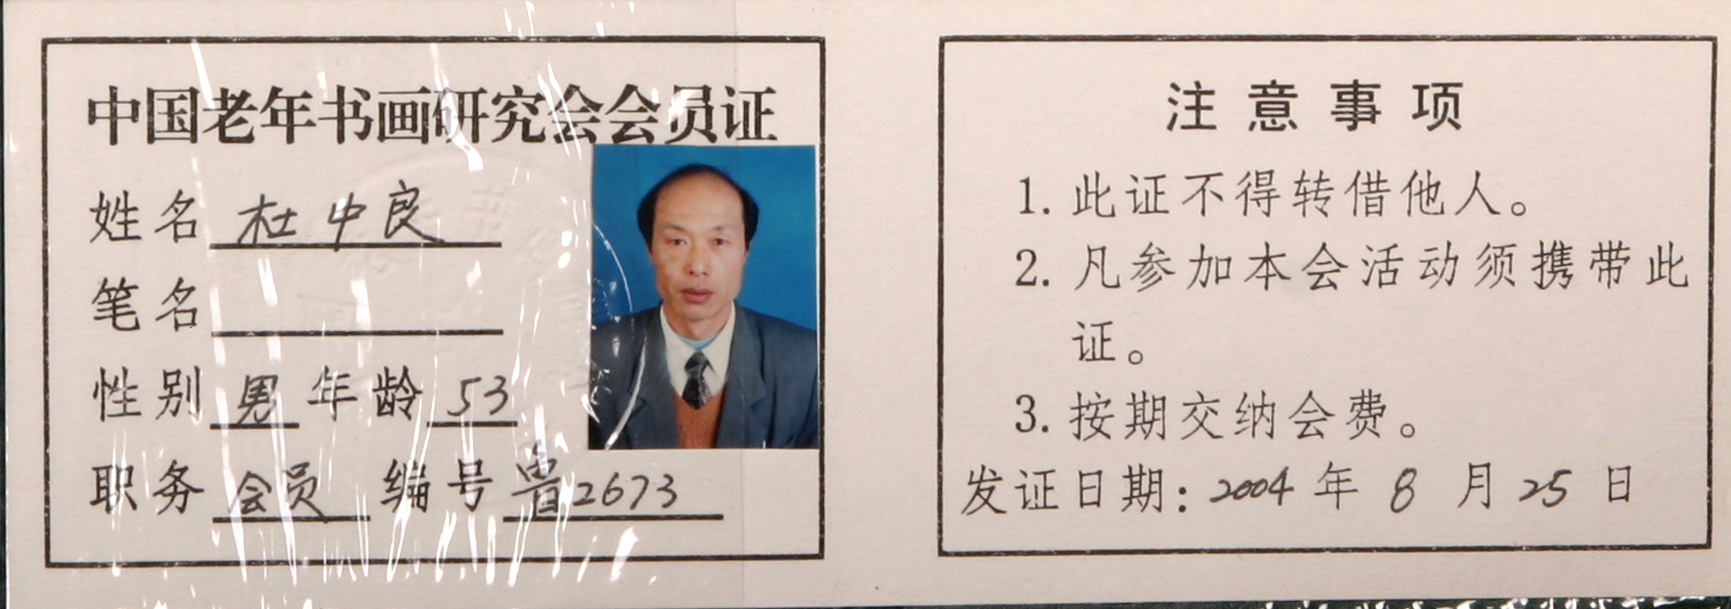 中国老年书画研究会会员证
姓名 杜中良
笔名
性别 男 年龄 53
职务 会员 编号 鲁2673
注意事项
1. 此证不得转借他人。
2. 凡参加本会活动须携带此
证。
3. 按期交纳会费。
发证日期: 2004 年 8 月 25 日